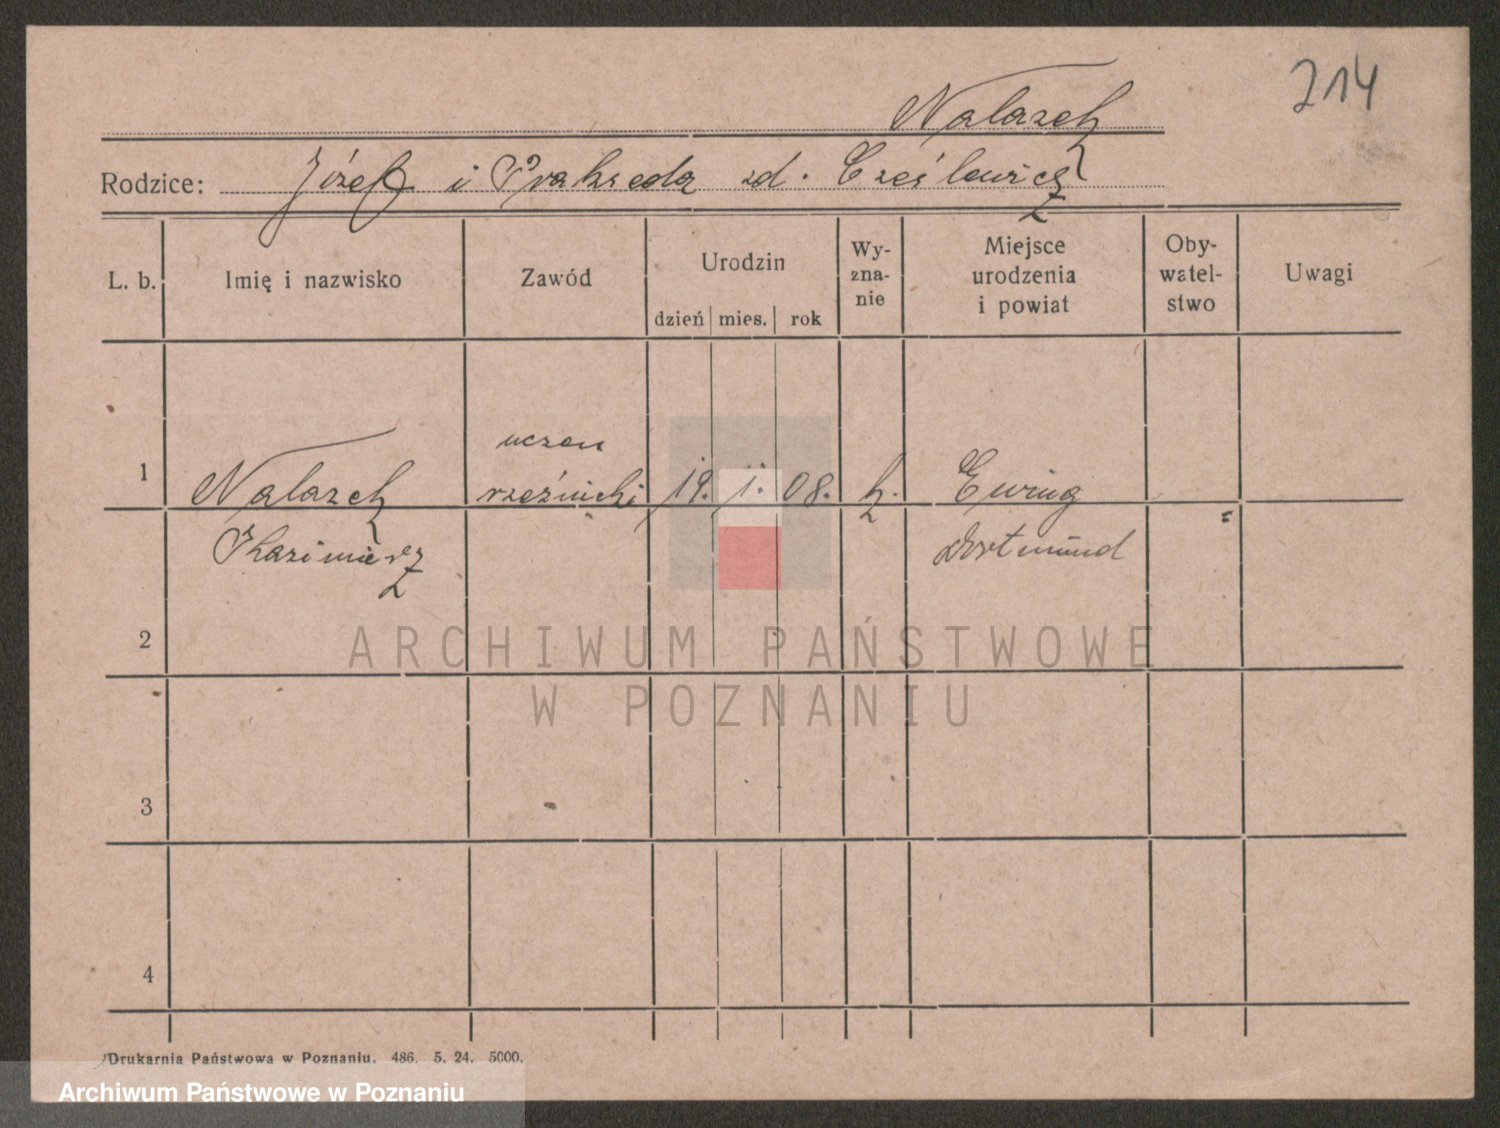 214
Nalazek
Rodzice: Józef i Prakseda zd. Cześlewicz
L. b.
Imię i nazwisko
Zawód
Urodzin
dzień mies. rok
Wy-
zna-
nie
Miejsce
urodzenia
i powiat
Oby-
watel-
stwo
Uwagi
uczeń
1 Nalazek rzeźnicki 19. 1. 08. k. Ewing
Kazimierz Dortmund
2
ARCHIWUM PAŃSTWOWE
W POZNANIU
3
4
Drukarnia Państwowa w Poznaniu. 486. 5. 24. 5000.
Archiwum Państwowe w Poznaniu